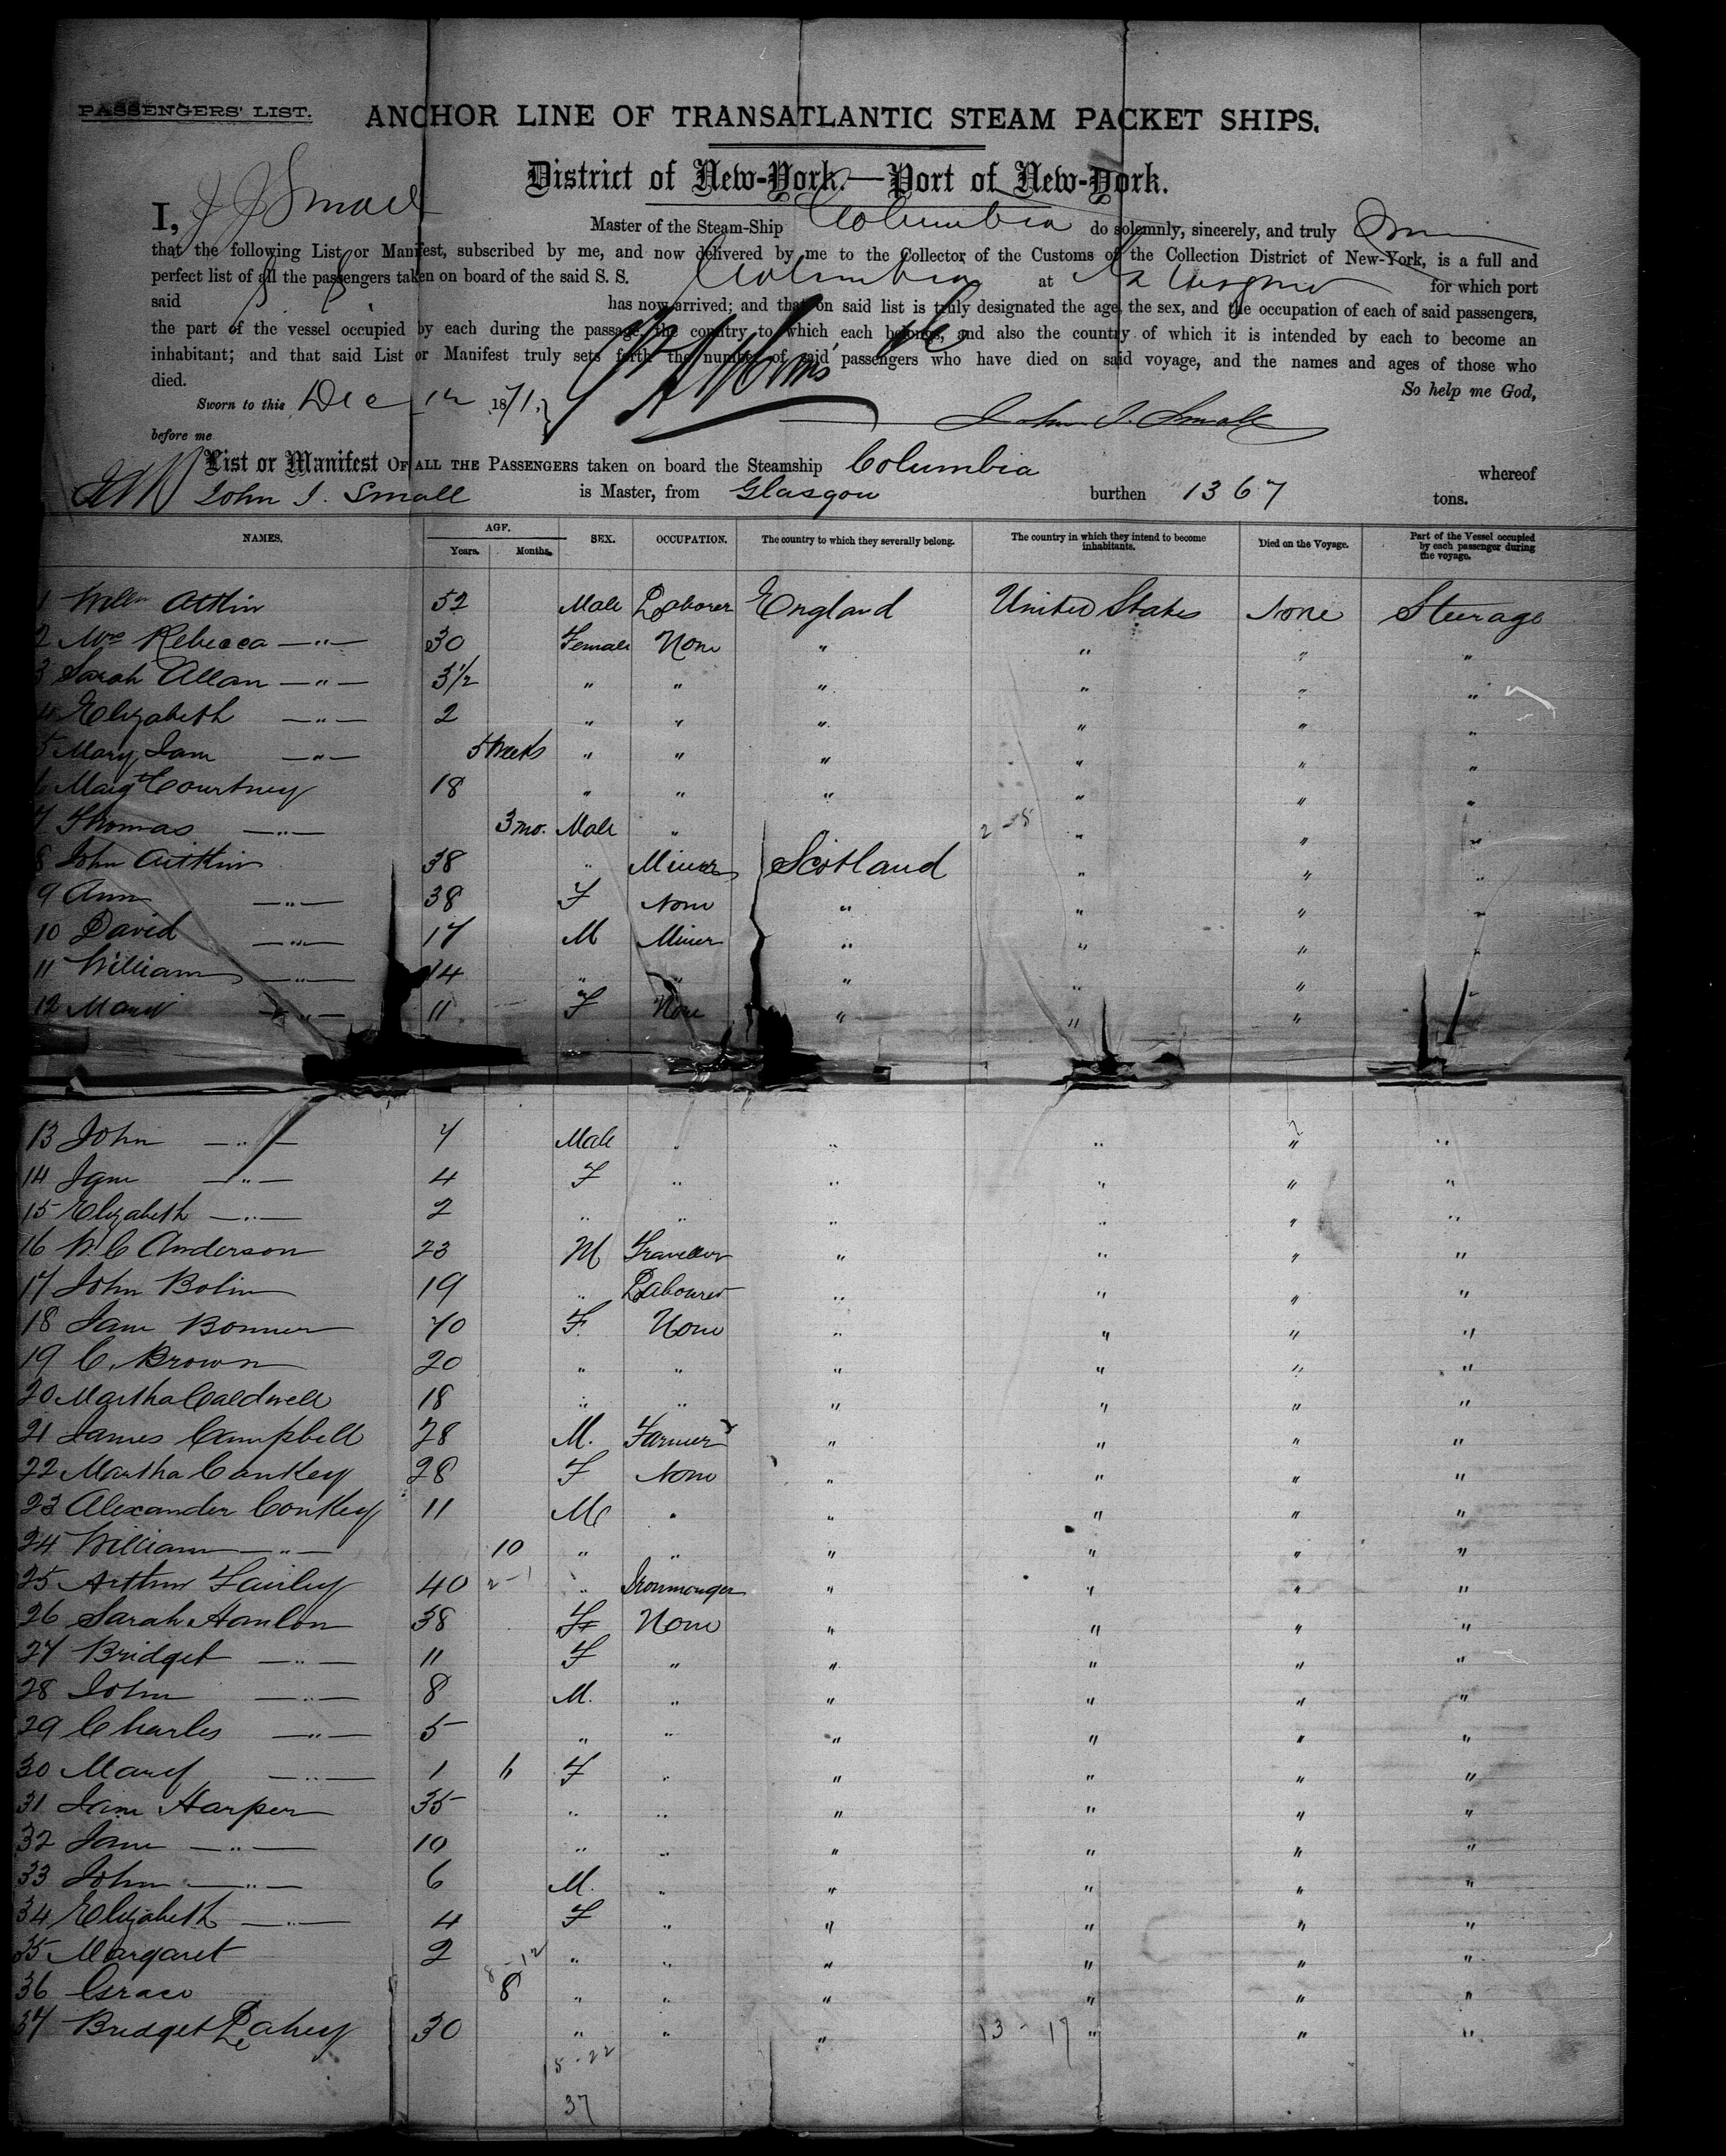 PASSENGERS' LIST.
ANCHOR LINE OF TRANSATLANTIC STEAM PACKET SHIPS.
District of New-York.—Port of New-York.
I, J J Small Master of the Steam-Ship Columbia do solemnly, sincerely, and truly
that the following List or Manifest, subscribed by me, and now delivered by me to the Collector of the Customs of the Collection District of New-York, is a full and
perfect list of all the passengers taken on board of the said S. S. Columbia at Glasgow for which port
said S. S. has now arrived; and that on said list is truly designated the age, the sex, and the occupation of each of said passengers,
the part of the vessel occupied by each during the passage, the country to which each belongs, and also the country of which it is intended by each to become an
inhabitant; and that said List or Manifest truly sets forth the number of said passengers who have died on said voyage, and the names and ages of those who
died. So help me God,
Sworn to this Dec 12 1871,
John J. Small
before me
List or Manifest OF ALL THE PASSENGERS taken on board the Steamship Columbia whereof
John J. Small is Master, from Glasgow burthen 1367 tons.
NAMES. AGE. Years. Months. SEX. OCCUPATION. The country to which they severally belong. The country in which they intend to become inhabitants. Died on the Voyage. Part of the Vessel occupied by each passenger during the voyage.
1 Willm Aitkin 52 Male Laborer England United States None Steerage
2 Mrs Rebecca —"— 30 Female None " " " "
3 Sarah Allan —"— 3½ " " " " " "
4 Elizabeth —"— 2 " " " " " "
5 Mary Jane —"— 5 Weeks " " " " " "
6 Margt Courtney 18 " " " " " "
7 Thomas —"— 3 mo. Male " " 2-5 " " "
8 John Aitkin 38 " Miner Scotland " " "
9 Ann —"— 38 F None " " " "
10 David —"— 17 M Miner " " " "
11 William —"— 14 " " " " " "
12 Mary —"— 11 F None " " "
13 John —"— 7 Male " " " " "
14 Jane —"— 4 F " " " " "
15 Elizabeth —"— 2 " " " " " "
16 W. C Anderson 23 M Traveller " " " "
17 John Bolin 19 " Labourer " " " "
18 Jane Bonner 70 F. None " " " "
19 C. Brown 20 " " " " " "
20 Martha Caldwell 18 " " " " " "
21 James Campbell 28 M. Farmer " " " "
22 Martha Conkey 28 F None " " " "
23 Alexander Conkey 11 M " " " " "
24 William —"— 10 " " " " " "
25 Arthur Fairley 40 2-1 " Ironmonger " " " "
26 Sarah Hanlon 38 F None " " " "
27 Bridget —"— 11 F " " " " "
28 John —"— 8 M. " " " " "
29 Charles —"— 5 " " " " " "
30 Mary —"— 1 6 F " " " " "
31 Jane Harper 35 " " " " " "
32 Jane —"— 10 " " " " " "
33 John —"— 6 M. " " " " "
34 Elizabeth —"— 4 F " " " " "
35 Margaret 2 " " " " " "
8-12
36 Grace 8 " " " " " "
37 Bridget Leahey 30 " " " 13-17 " " "
15-22
37